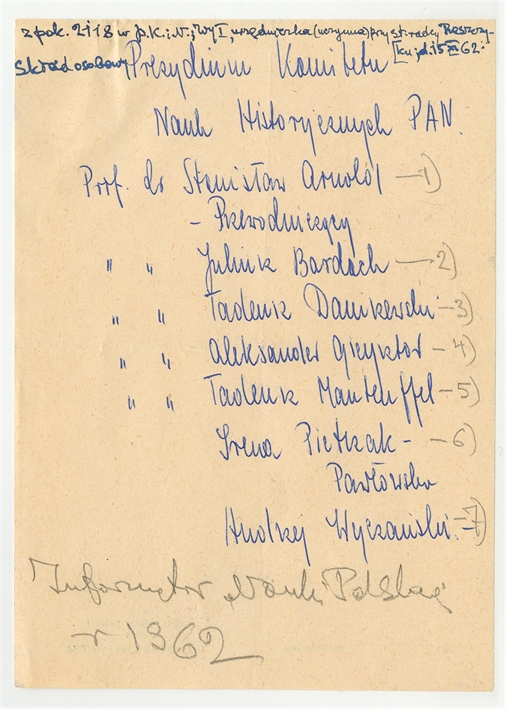 z pok. 2118 w p.K.i.N.; Wy I, urzędniczka (uczynna) przy st. radcy Reszczyń-
Skład osobowy Prezydium Komitetu [ku; d. 15 XI 62.
Nauk Historycznych PAN.
Prof. dr Stanisław Arnold —1)
- Przewodniczący
" " Juliusz Bardach —2)
" " Tadeusz Daniszewski —3)
" " Aleksander Gieysztor —4)
" " Tadeusz Manteuffel —5)
Irena Pietrzak- —6)
Pawłowska
Andrzej Wyczański. —7)
Informator „Nauki Polskiej”
r 1962